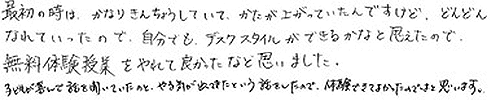 最初の時は、かなりきんちょうしていて、かたが上がっていたんですけど、どんどん
なれていったので、自分でも、デスクスタイルができるかなと思えたので、
無料体験授業をやれて良かったなと思いました。
子どもが喜んで話を聞いていたのと、やる気が出てきたという話をしたので、体験できてよかったのではと思います。